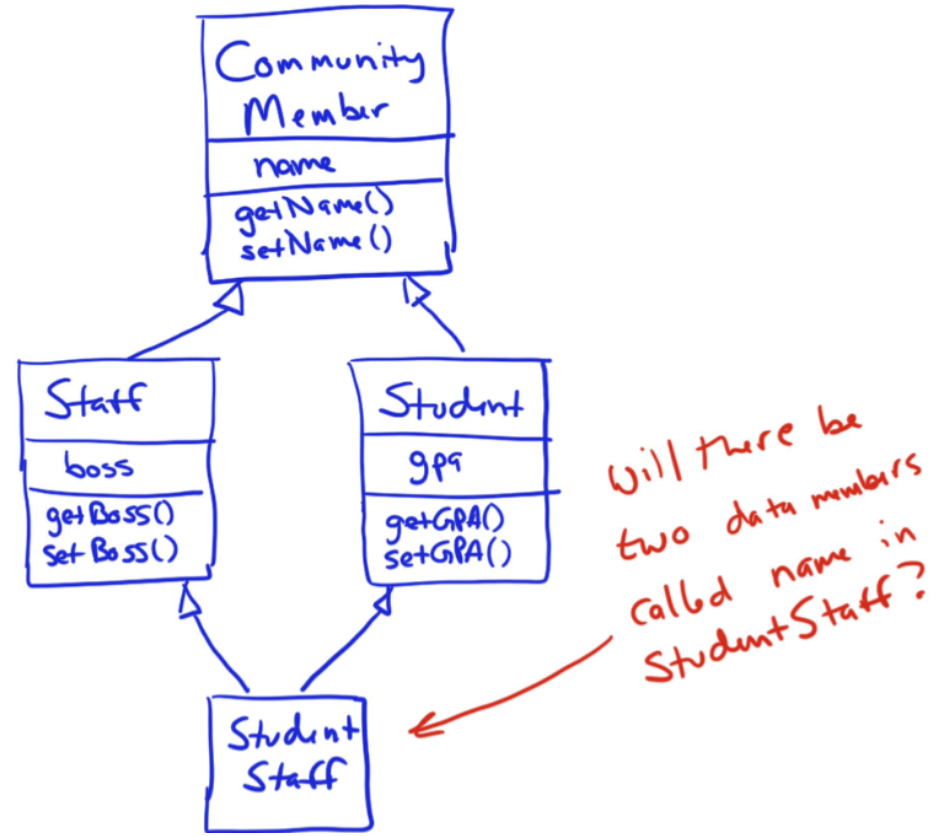 Community
Member
name
getName()
setName()
Staff
boss
getBoss()
setBoss()
Student
gpa
getGPA()
setGPA()
Will there be
two data members
called name in
StudentStaff?
Student
Staff